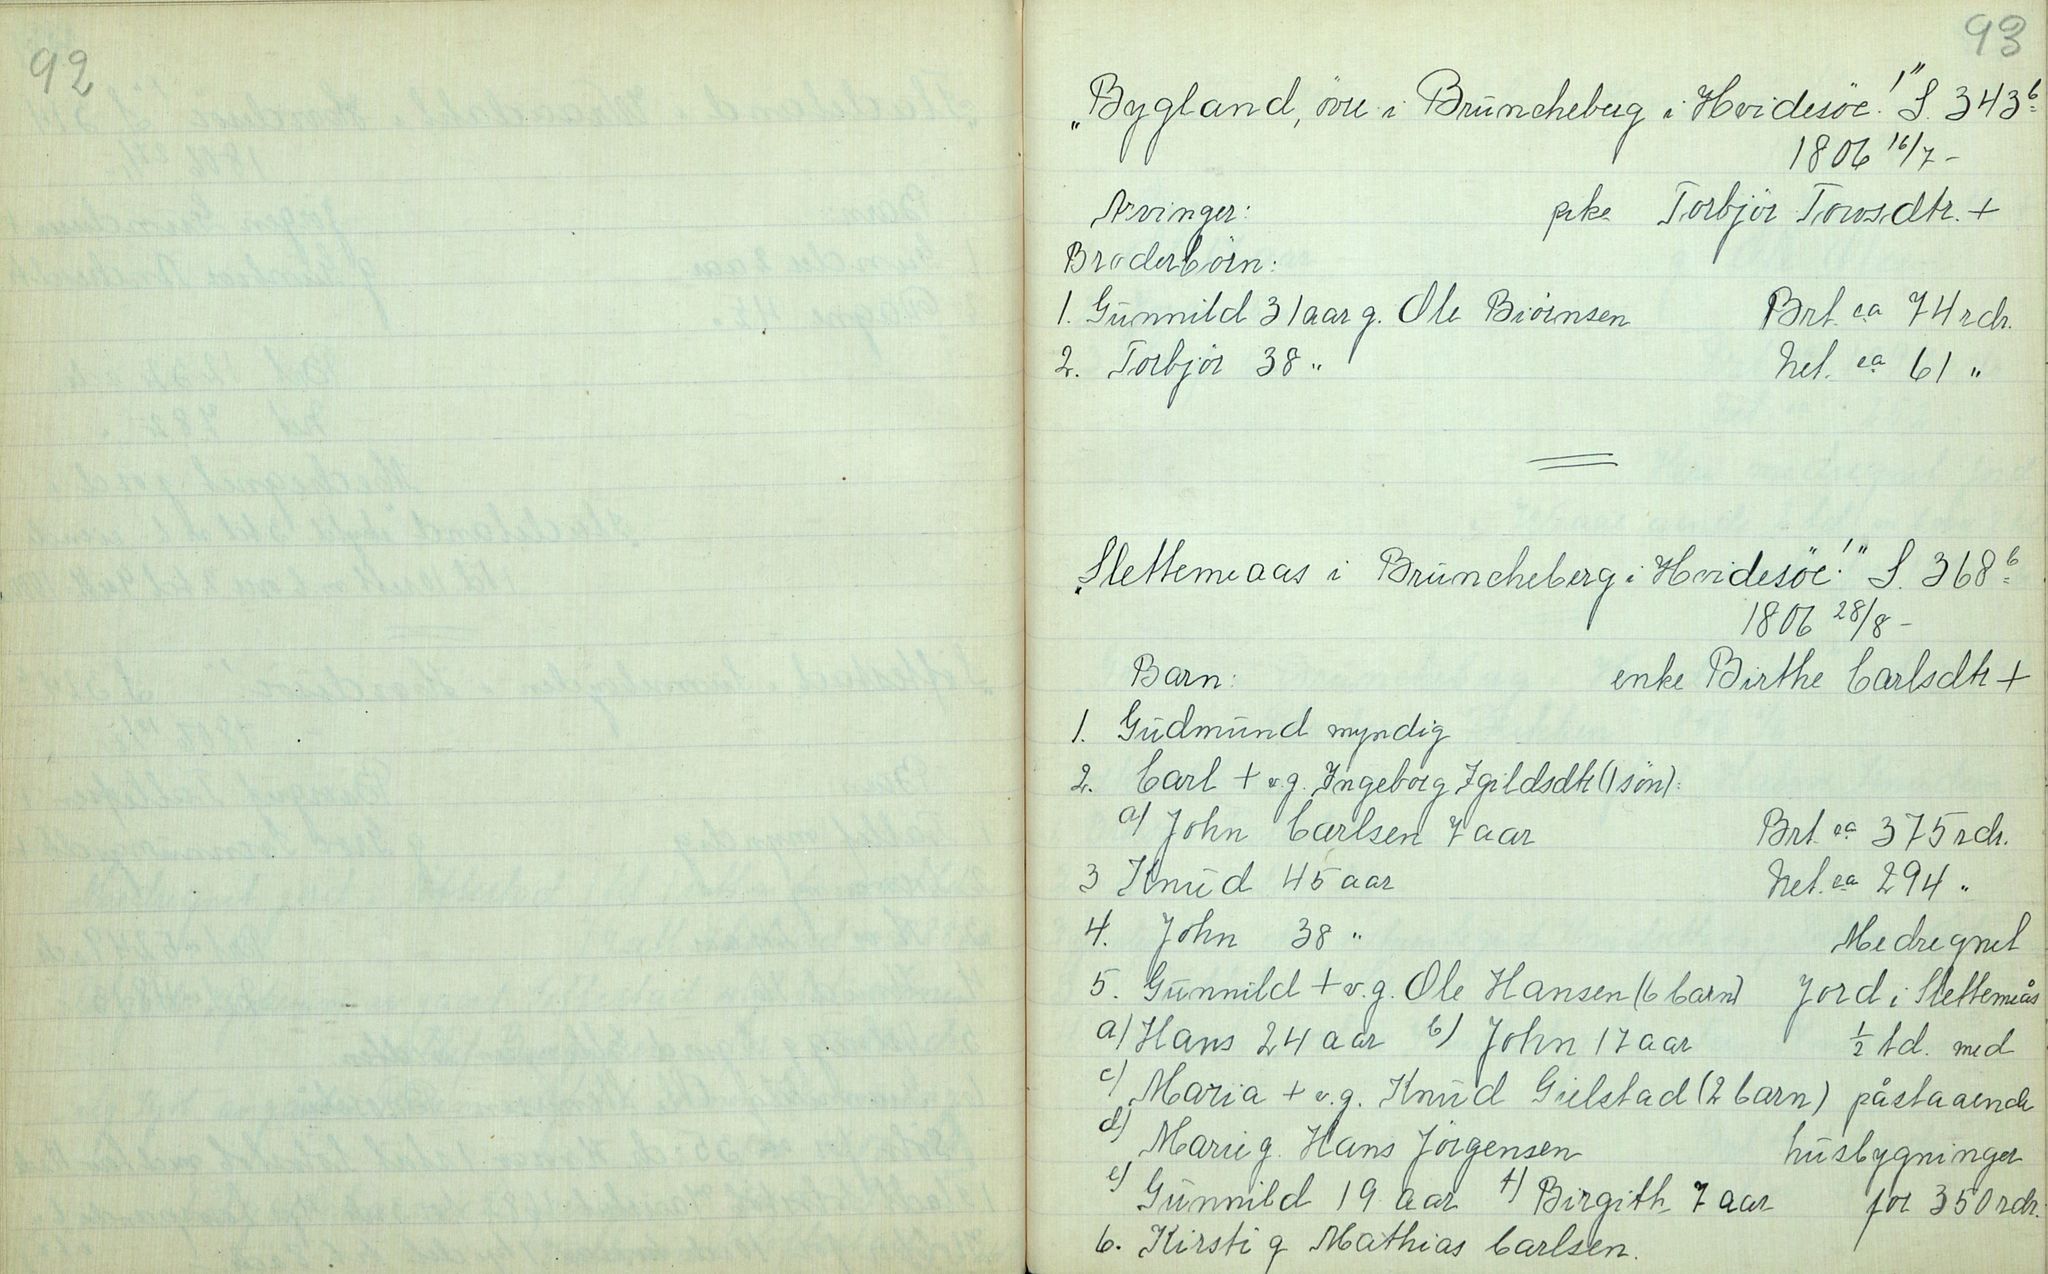 92
93
„Bygland, övre i Brüncheberg i Hvidesöe!" S. 343 b
1806 16/7 -
Arvinger: pike Torbjör Torosdtr. +
Broderbörn:
1. Günnild 31 aar g. Ole Biörnsen Brt. ca 74 rdr.
2. Torbjör 38 " Net. ca 61 "
„Slettemeaas i Brüncheberg i Hvidesöe!" S. 368 b
1806 28/8 -
Barn: enke Birthe Carlsdtr +
1. Güdmünd myndig
2. Carl + v.g. Ingeborg Igildsdtr (1 sön):
a) John Carlsen 7 aar Brt. ca 375 rdr.
3 Knüd 45 aar Net. ca 294 "
4. John 38 " Medregnet
5. Günnild + v.g. Ole Hansen (6 barn) Jord i Slettemeås
a) Hans 24 aar b) John 17 aar ½ td. med
c) Maria + v.g. Knüd Gielstad (2 barn) påstaaende
d) Marie g. Hans Jörgensen hüsbygninger
e) Günnild 19 aar f) Birgith 7 aar for 350 rdr.
6. Kirsti g Mathias Carlsen.